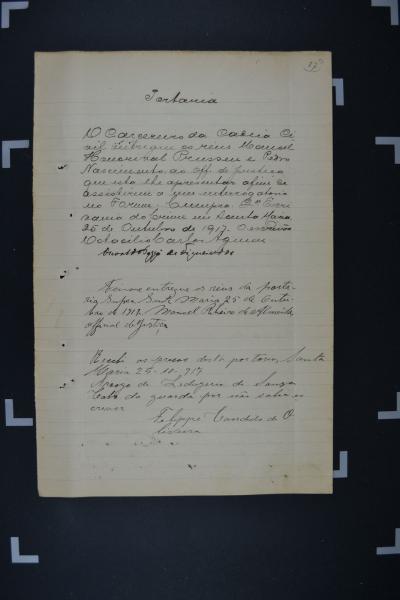 27
Portaria
O Carcereiro da Cadeia Ci
vil entregue os réus Manoel
Honorival e Pedro
Nascimento, ao off. de justiça
que esta lhe apresentar afim de
assistirem a um interrogatorio
no Forum. Cumpra. 2º Escri
vania do Crime em Santa Maria
25 de Outubro de 1917. O escrivão
Octacilio Carlos
de Figueiredo
entregue os reus da porta
ria supra Santa Maria 25 de Outu
bro de 1917. Manoel Ribeiro de Almeida
official de Justiça
Recebi os presos desta portaria, Santa
Maria 25-10-917
Arogo de de Souza
Cabo da guarda por não saber es
crever
Felippe Candido de O
liveira